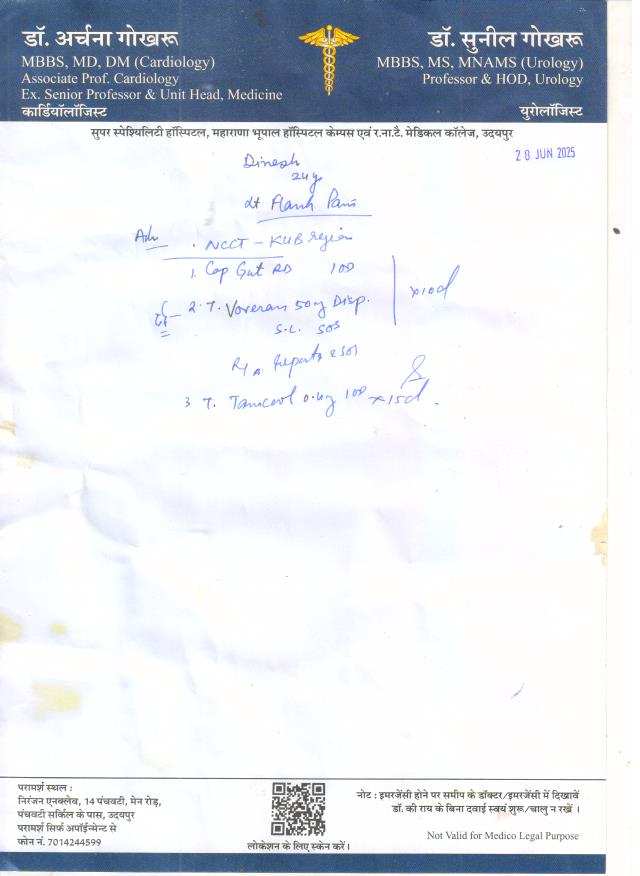 डॉ. अर्चना गोखरू
MBBS, MD, DM (Cardiology)
Associate Prof. Cardiology
Ex. Senior Professor & Unit Head, Medicine
कार्डियॉलॉजिस्ट
डॉ. सुनील गोखरू
MBBS, MS, MNAMS (Urology)
Professor & HOD, Urology
युरोलॉजिस्ट
सुपर स्पेश्यिलिटी हॉस्पिटल, महाराणा भूपाल हॉस्पिटल केम्पस एवं र.ना.टै. मेडिकल कॉलेज, उदयपुर
28 JUN 2025
Dinesh
24y
Flank Pain
Adv . NCCT - KUB region
1. Cap Gut RD 1OD
x10d
2. T. Voveran 50mg Disp.
S.L. SOS
Reports
3 T. 0.4mg 1OD x15d.
परामर्श स्थल :
निरंजन एनक्लेव, 14 पंचवटी, मेन रोड़,
पंचवटी सर्किल के पास, उदयपुर
परामर्श सिर्फ अपॉईन्मेन्ट से
फोन नं. 7014244599
लोकेशन के लिए स्केन करें।
नोट : इमरजेंसी होने पर समीप के डॉक्टर/इमरजेंसी में दिखावें
डॉ. की राय के बिना दवाई स्वयं शुरू/चालु न रखें ।
Not Valid for Medico Legal Purpose